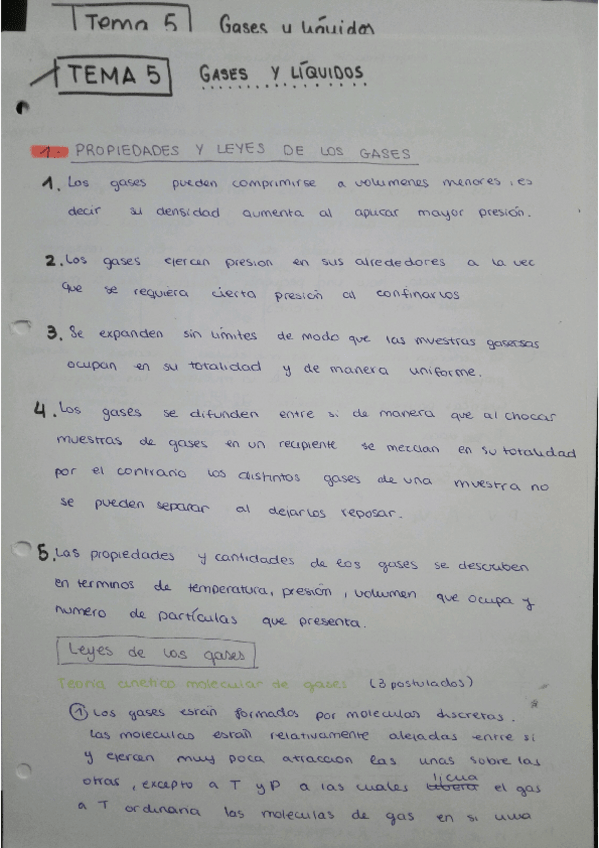 Tema 5 Gases y líquidos
TEMA 5 GASES Y LÍQUIDOS
1. PROPIEDADES Y LEYES DE LOS GASES
1. Los gases pueden comprimirse a volumenes menores, es
decir su densidad aumenta al aplicar mayor presión.
2. Los gases ejercen presion en sus alrededores a la vec
que se requiera cierta presión al confinarlos
3. Se expanden sin límites de modo que las muestras gaseosas
ocupan en su totalidad y de manera uniforme.
4. Los gases se difunden entre si de manera que al chocar
muestras de gases en un recipiente se mezclan en su totalidad
por el contrario los distintos gases de una muestra no
se pueden separar al dejarlos reposar.
5. Las propiedades y cantidades de los gases se describen
en terminos de temperatura, presión, volumen que ocupa y
numero de partículas que presenta.
Leyes de los gases
Teoria cinetico molecular de gases (3 postulados)
① Los gases están formados por moleculas discretas.
Las moleculas están relativamente alejadas entre si
y ejercen muy poca atraccion las unas sobre las
otras, excepto a T y P a las cuales licua el gas
a T ordinaria las moleculas de gas en si una